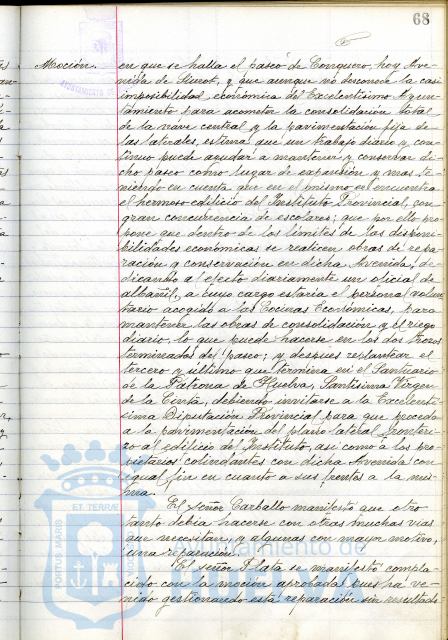 68
Moción.
en que se halla el paseo de Conquero, hoy Ave-
nida de Siurot, y que aunque no desconoce la casi
imposibilidad económica del Excelentísimo Ayun-
tamiento para acometer la consolidación total
de la nave central y la pavimentación fija de
las laterales, estima que un trabajo diario y con-
tinuo puede ayudar a mantener y conservar di-
cho paseo como lugar de expansión y mas te-
niendo en cuenta que en el mismo se encuentra
el hermoso edificio del Instituto Provincial, con
gran concurrencia de escolares; que por ello pro-
pone que dentro de los límites de las disponi-
bilidades económicas se realicen obras de repa-
ración y conservación en dicha Avenida, de-
dicando al efecto diariamente un oficial de
albañil, a cuyo cargo estaría el personal volun-
tario acogido a las Cocinas Económicas, para
mantener las obras de consolidación y el riego
diario, lo que puede hacerse en los dos trozos
terminados del paseo; y despues replantear el
tercero y último que termina en el Santuario
de la Patrona de Huelva, Santísima Virgen
de la Cinta, debiendo invitarse a la Excelentí-
sima Diputación Provincial para que proceda
a la pavimentación del plano lateral fronteri-
zo al edificio del Instituto, así como a los pro-
pietarios colindantes con dicha Avenida con
igual fin en cuanto a sus frentes a la mis-
ma.
El señor Carballo manifestó que otro
tanto debía hacerse con otras muchas vias
que necesitan, y algunas con mayor motivo,
una reparación.
El señor Plata se manifestó compla-
cido con la moción aprobada pues ha ve-
nido gestionando esta reparación sin resultado
AYUNTAMIENTO DE
PORTUS MARIS
ET TERRAE
Ayuntamiento de